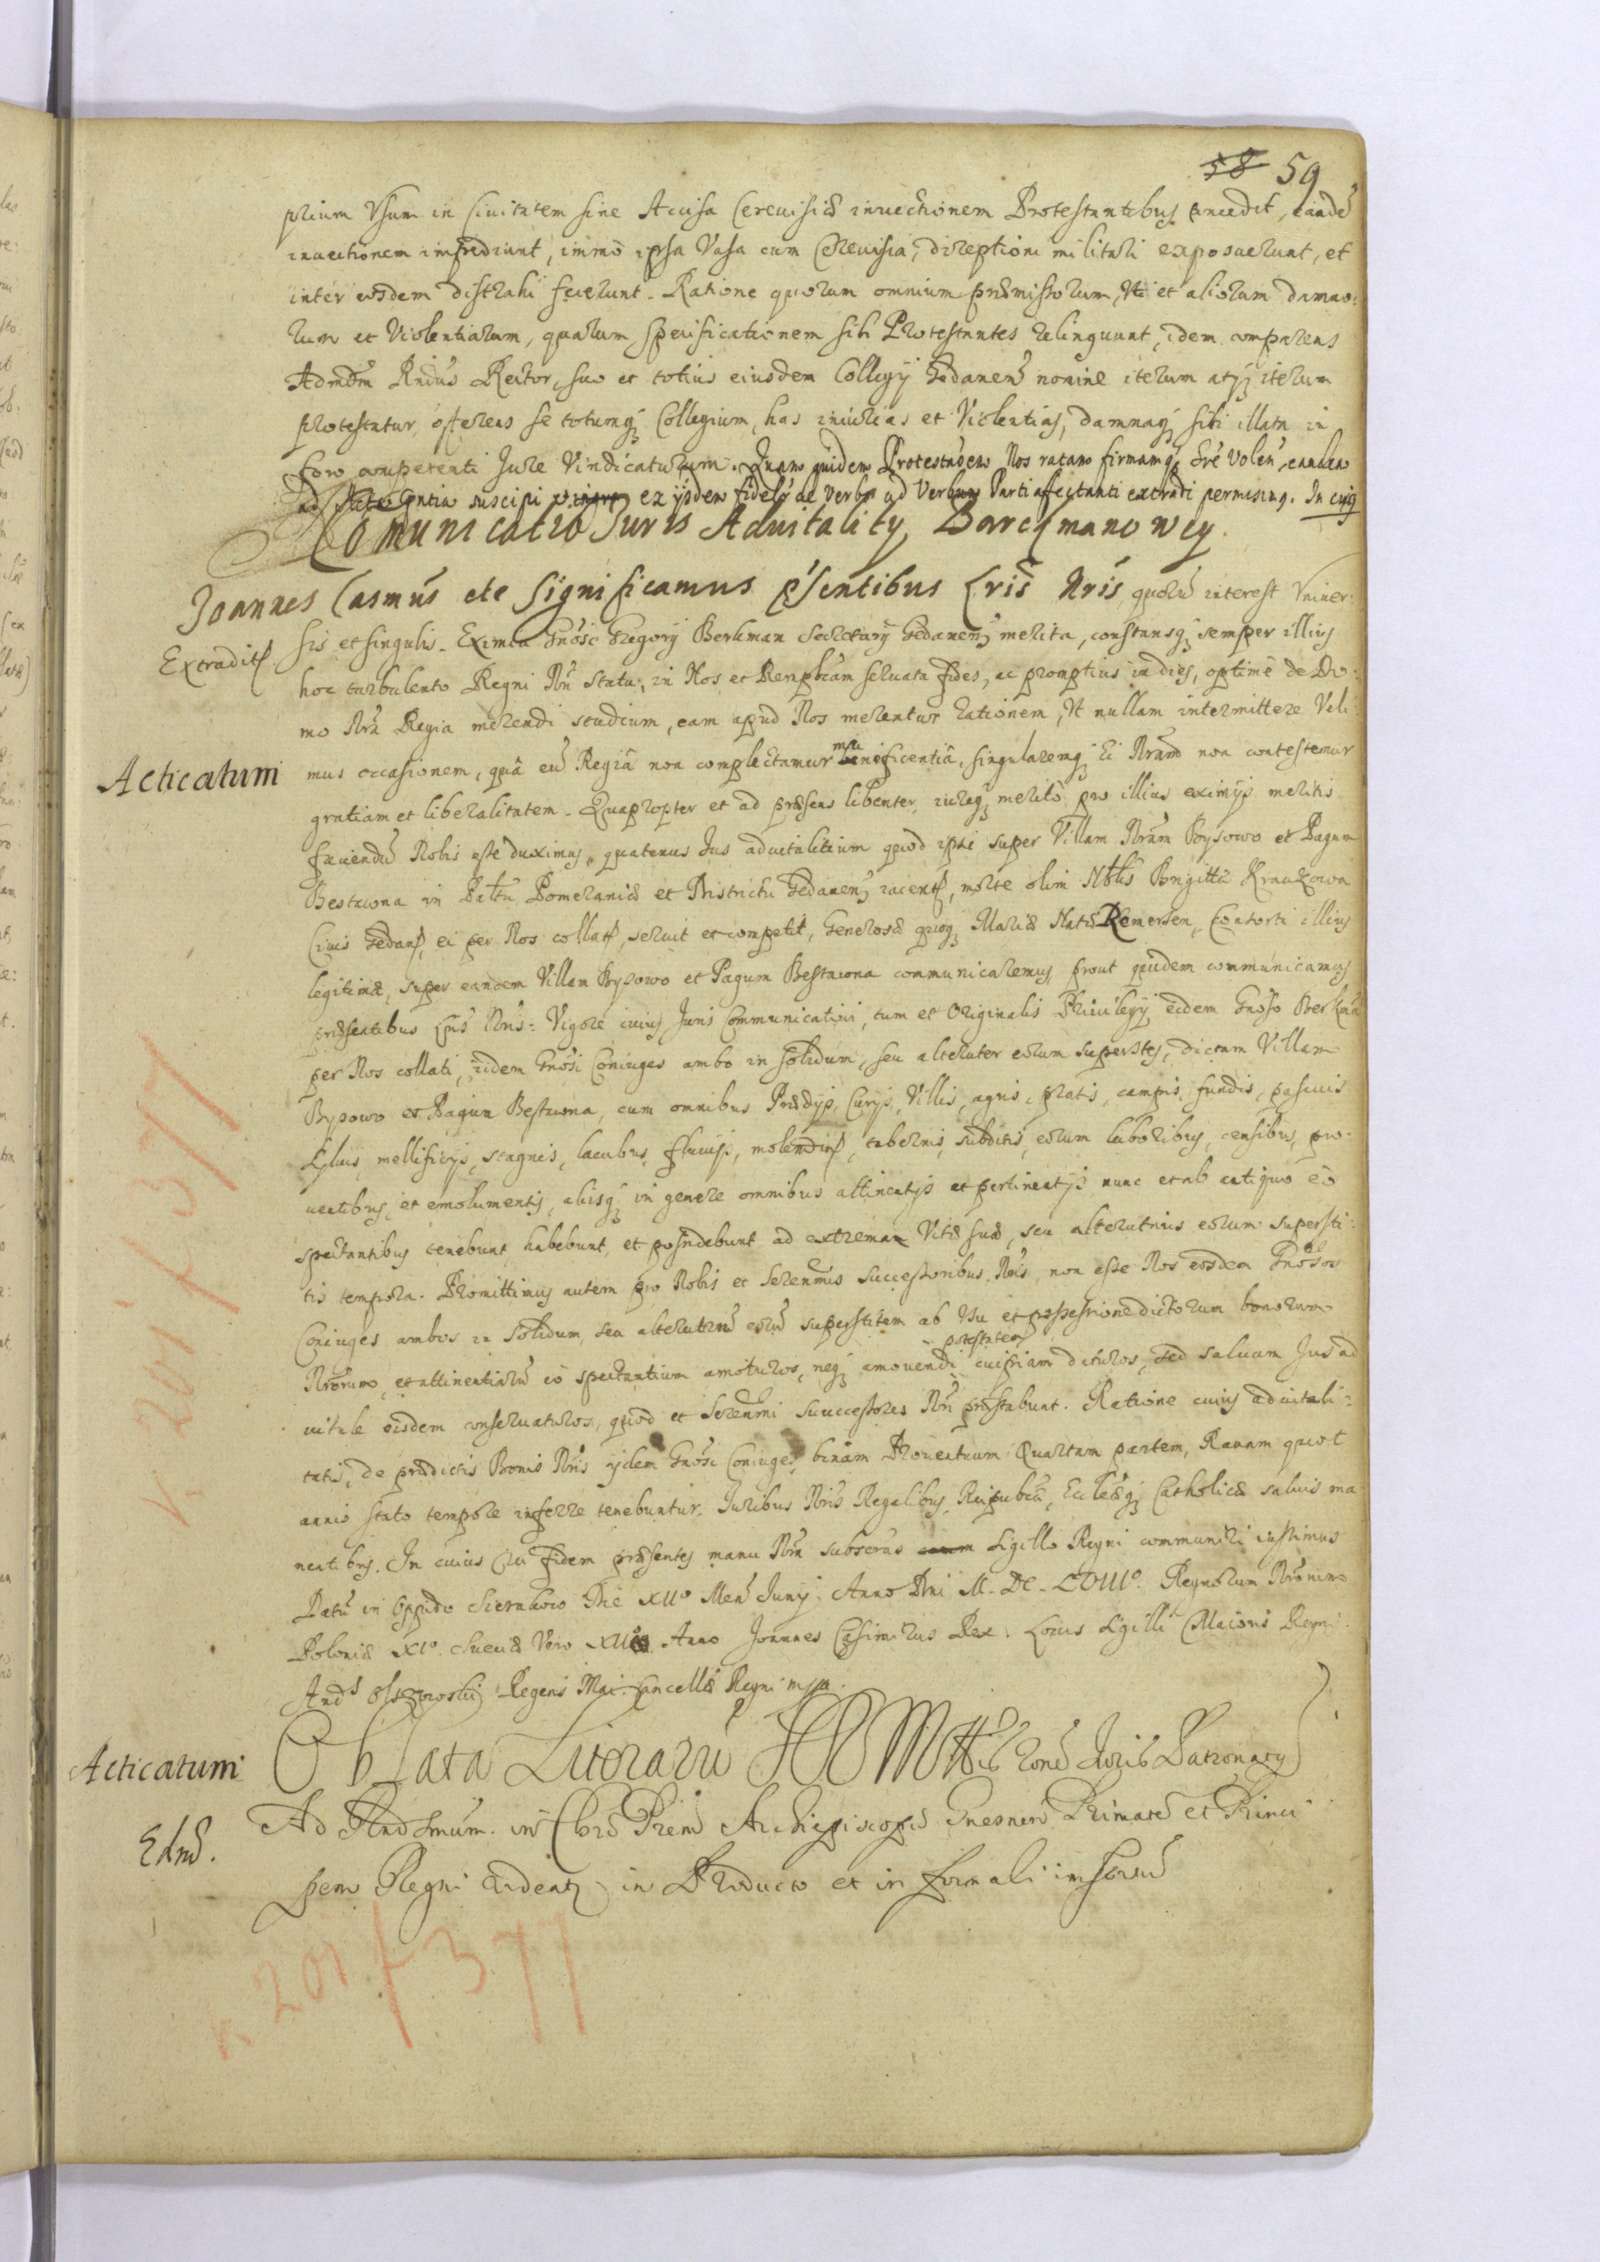 58 59
prium Usum in Civitatem sine Accisa Cerevisiæ invectionem Protestantibus concedit, eandē
invectionem impediunt, immò ipsa Vasa cum Cerevisia, direptioni militari exposuerunt, et
inter eosdem distrahi fecerunt. Ratione quorum omnium præmissorum, Uti et aliorum damno-
rum et Violentiarum, quarum specificationem sibi Protestantes relinquunt, idem comparens
Admdm Rndus Rector, suo et totius eiusdem Collegij Gedanens nomine iterum atq iterum
protestatur, offerens se totumq Collegium, has iniurias et Violentias, damnaq sibi illata in
foro competenti Jure Vindicaturum. Quam quidem Protestaōem Nos ratam firmamq Ere Volen, eandem
ad Acta suscipi ex ijsdem fideliter de Verbo ad Verbum Parti affectanti extradi permisimq. In cuiq
Comunicatio Juris Aduitalitÿ Barckmanowey
Joannes Casmūs etc Significamus p'sentibus Lris Nris, quorū interest Univer-
Extradits
sis et singulis. Eximia Gnōsi Gregorij Berkman Secretarij Gedanens merita, constansq semper illius
hoc turbulento Regni Nri statu, in Nos et Rempblcam servata fides, ac promptius indies, optimè de Do-
mo Nra Regia merendi studium, eam apud Nos merentur rationem, Ut nullam intermittere Veli-
Acticatum
mus occasionem, quâ eū Regiâ non complectamur munificentiâ, singularemq Ei Nram non contestemur
gratiam et liberalitatem. Quapropter et ad præsens libenter, iureq meritò pro illius eximijs meritis
faciendū Nobis esse duximus, quatenus Jus aduitalitium quod ipsi super Villam Nram Bysowo et Pagum
Bestwona in Paltu Pomeraniæ et Districtu Gedanens iacent, morte olim Nblis Brigittæ Krauzowa
Civis Gedans, ei per Nos collats, servit et competit, Generosæ quoq Mariæ Natæ Remersen, Consorti illius
legitimæ, super eandem Villam Bysowo et Pagum Bestwona communicaremus, prout quidem communicamus
præsentibus Lris Nris. Vigore cuius Juris Communicativi, tum et Originalis Privilegij eidem Gnōso Berkman
per Nos collati, iidem Gnōsi Coniuges ambo in solidum, seu alteruter eorum superstes, dictam Villam
Bysowo et Pagum Bestwona, cum omnibus Prædijs, Curijs, Villis, agris, pratis, campis, fundis, pascuis
Sylvis, mellificijs, stagnis, lacubus, fluvijs, molendinis, tabernis, subditis, eorum laboribus, censibus, pro-
ventibus, et emolumentis, alijsq in genere omnibus attinentijs et pertinentijs nunc et ab antiquo eò
spectantibus tenebunt habebunt, et possidebunt ad extrema Vitæ suæ, seu alterutrius eorum supersti-
tis tempora. Promittimus autem pro Nobis et Serenmis Successoribus Nris, non esse Nos eosdem Gnōsos
Coniuges ambos in solidum, seu alterutrū eorū superstitem ab Usu et possessione dictorum bonorum
Nrorum, et attinentiarū eò spectantium amoturos, neq amovendi potestatem cuipiam daturos, sed salvum Jus ad
vitale eisdem conservaturos, quod et Serenmi Successores Nri præstabunt. Ratione cuius aduitali-
tatis, de prædictis Bonis Nris ijdem Gnōsi Coniuges, binam Proventuum Quartam partem, Ravam quot
annis stato tempore inferre tenebuntur. Juribus Nris Regalibus, Reipublcæ, Ecclæq Catholicæ salvis ma-
nentibus. In cuius rei fidem præsentes manu Nra subscras Sigillo Regni communiri iussimus
Datū in Oppido Die XIIo Mens Junij. Anno Dni M. DC. LVIIIo. Regnorum Nrorum
Poloniæ XIo. Sueciæ Vero XIIo Anno Joannes Casimirus Rex. Locus Sigilli Maioris Regni.
Andrs Olszowskij Regens Mai. Cancellæ Regni mpp.
Acticatum
Oblata Literarū Juris Patronatus
Edns.
Ad Rndssmum in Chro Prem Archiepiscopū Gnesnens Primatē et Princi-
pem Regni in Producto et in formali
k 201 f 377
k 201 f 377